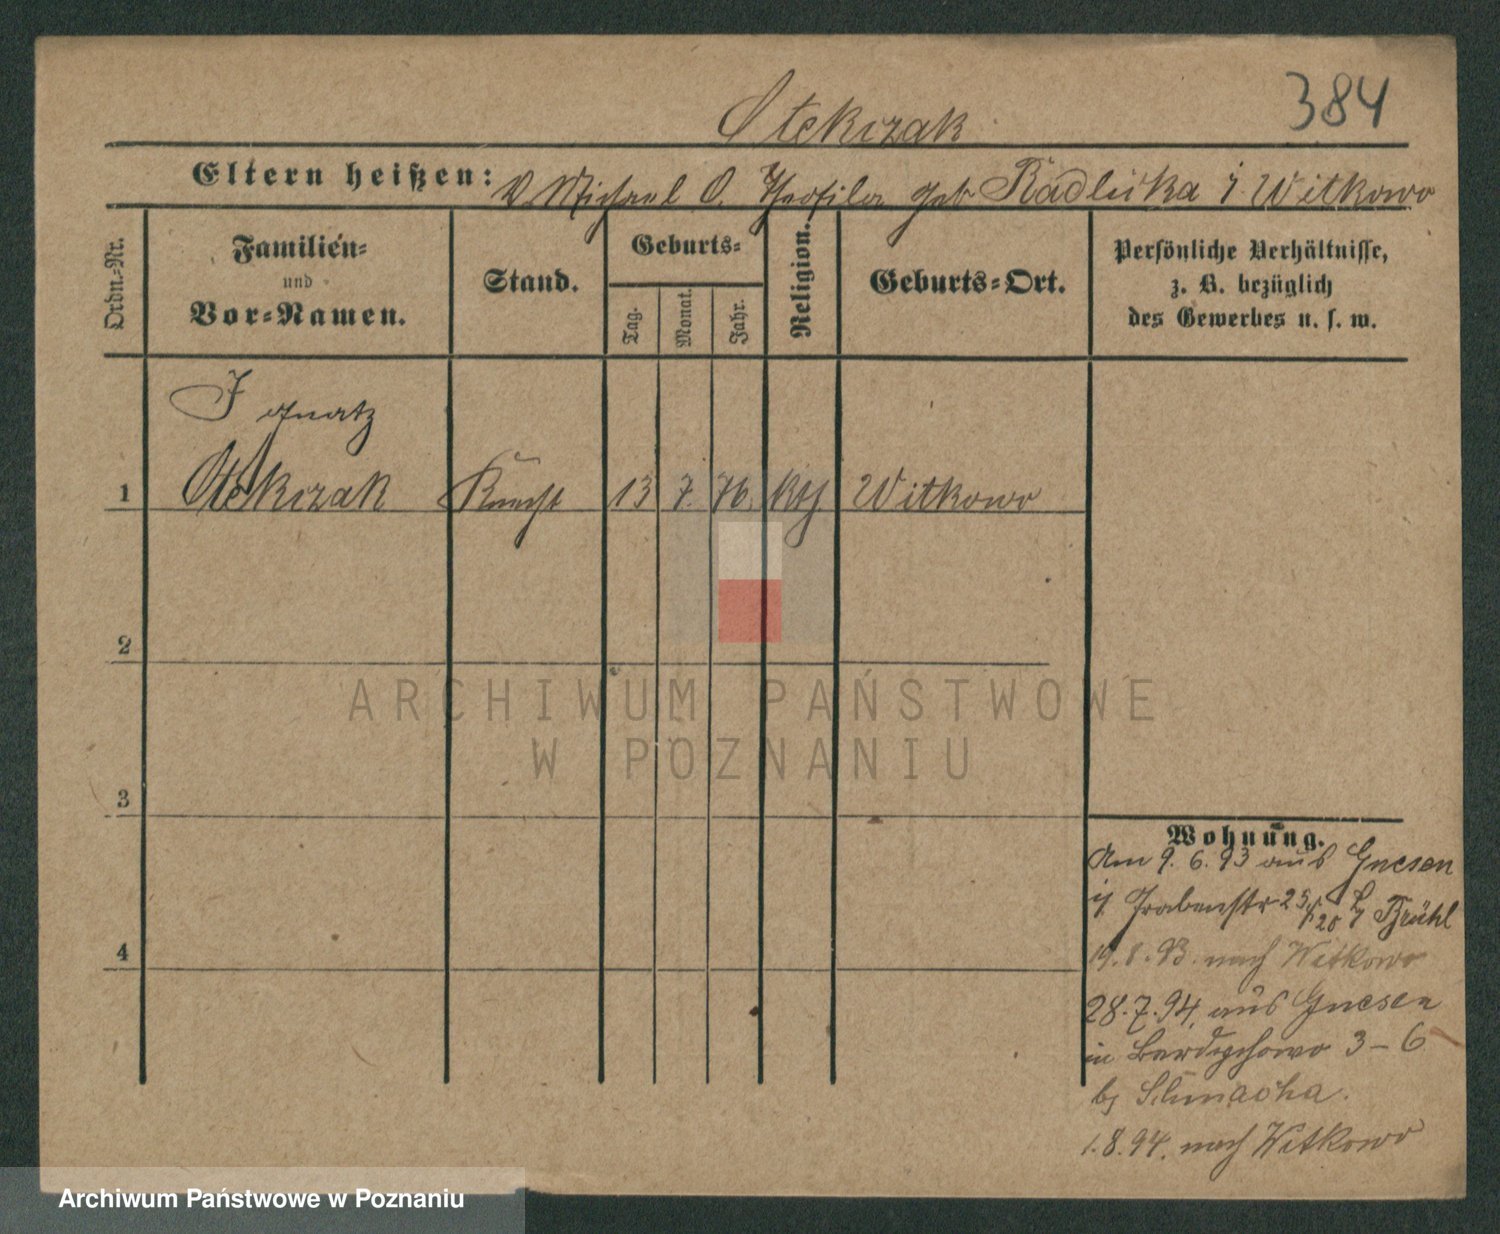 Stekczak
384
Eltern heißen: V. Michael O. Theofila geb Radlicka i. Witkowo
Ordn.-Nr.
Familien-
und
Vor-Namen.
Stand.
Geburts-
Tag.
Monat.
Jahr.
Religion.
Geburts-Ort.
Persönliche Verhältnisse,
z. B. bezüglich
des Gewerbes u. s. w.
Ignatz
1 Stekczak Knecht 13 7. 76. kth Witkowo
2
3
4
Wohnung.
Am 9. 6. 93 aus Gnesen
Grabenstr 25 Brühl
19. 8. 93. nach Witkowo
28. 7. 94. aus Gnesen
in Bardychowo 3 – 6
b/
1. 8. 94. nach Witkowo
ARCHIWUM PAŃSTWOWE
W POZNANIU
Archiwum Państwowe w Poznaniu